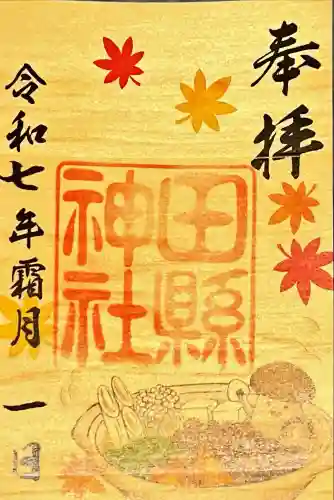 奉拝
田縣神社
令和七年霜月一日